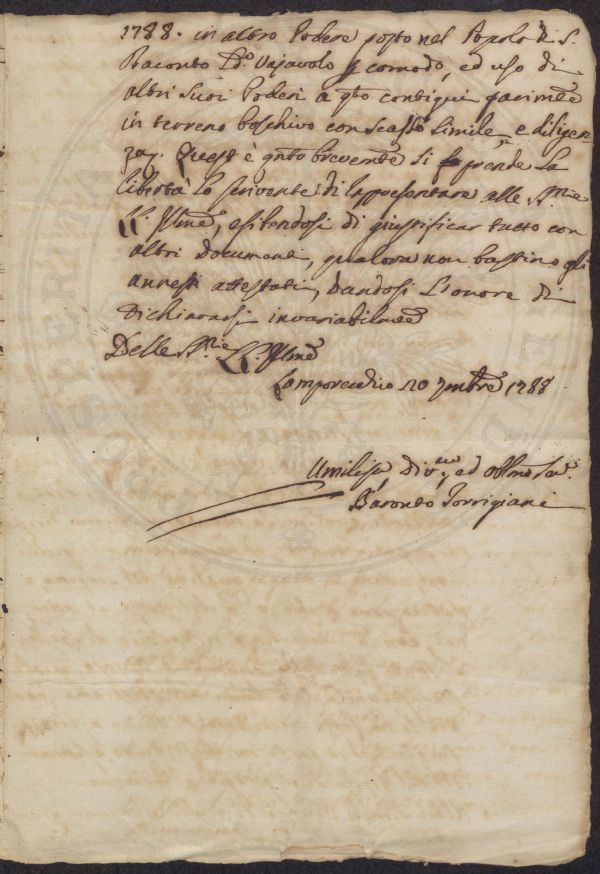 1788. in altro Podere posto nel Popolo di S.
Baronto L.º Vajavolo p comodo, ed uso di
altri suoi Poderi a qto contigui parimte
in terreno boschivo con scasso simile, e diligen-
za. Quest è qnto brevemte si prende la
libertà lo scrivente di rappresentare alle
LL. Illme, esibendosi di giustificar tutto con
altri documenti, qualora non bastino gli
annessi attestati, dandosi l'onore di
dichiararsi invariabilmte
Delle LL. Illme
Lamporecchio 20 7mbre 1788
Umiliss Div.mo, ed Obbmo Ser.
Baronto Torrigiani